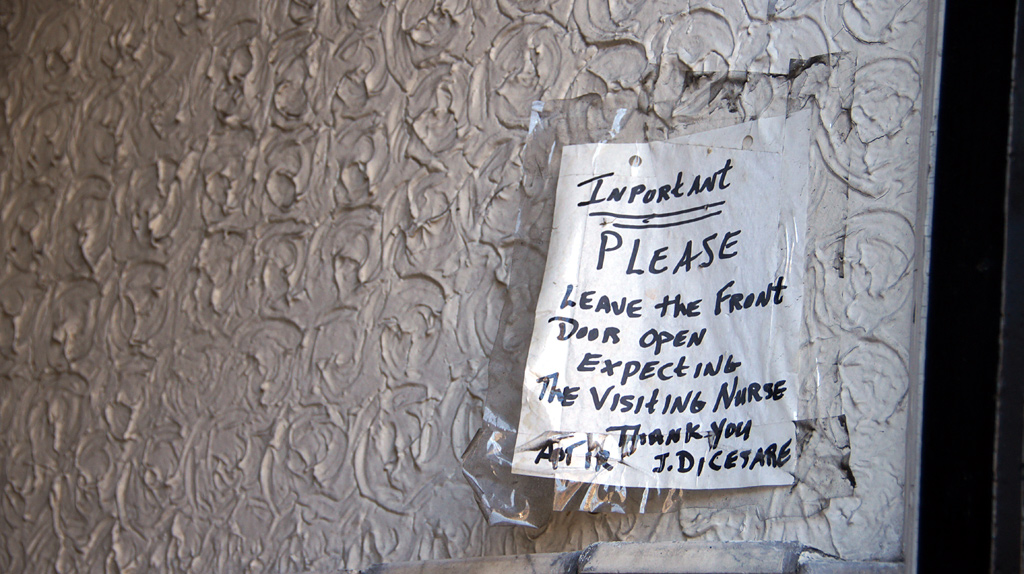 INPORTANT
PLEASE
LEAVE the FRONT
DOOR OPEN
EXPECTING
THE VISITING NURSE
THANK YOU
APT 1R J. DICESARE